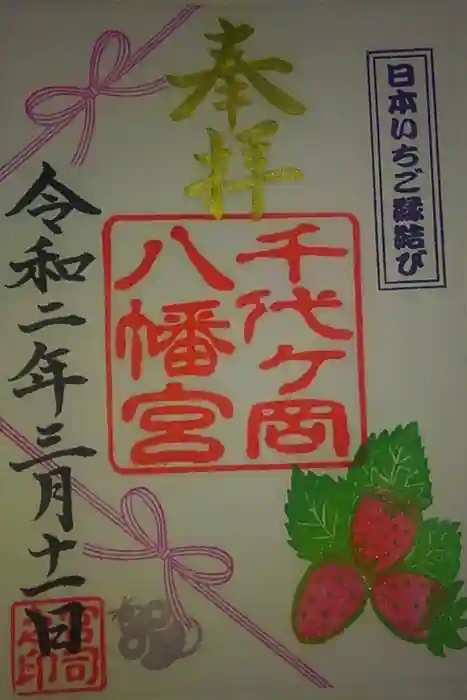 日本いちご縁結び
奉拝
千代ヶ岡
八幡宮
令和二年三月十一日